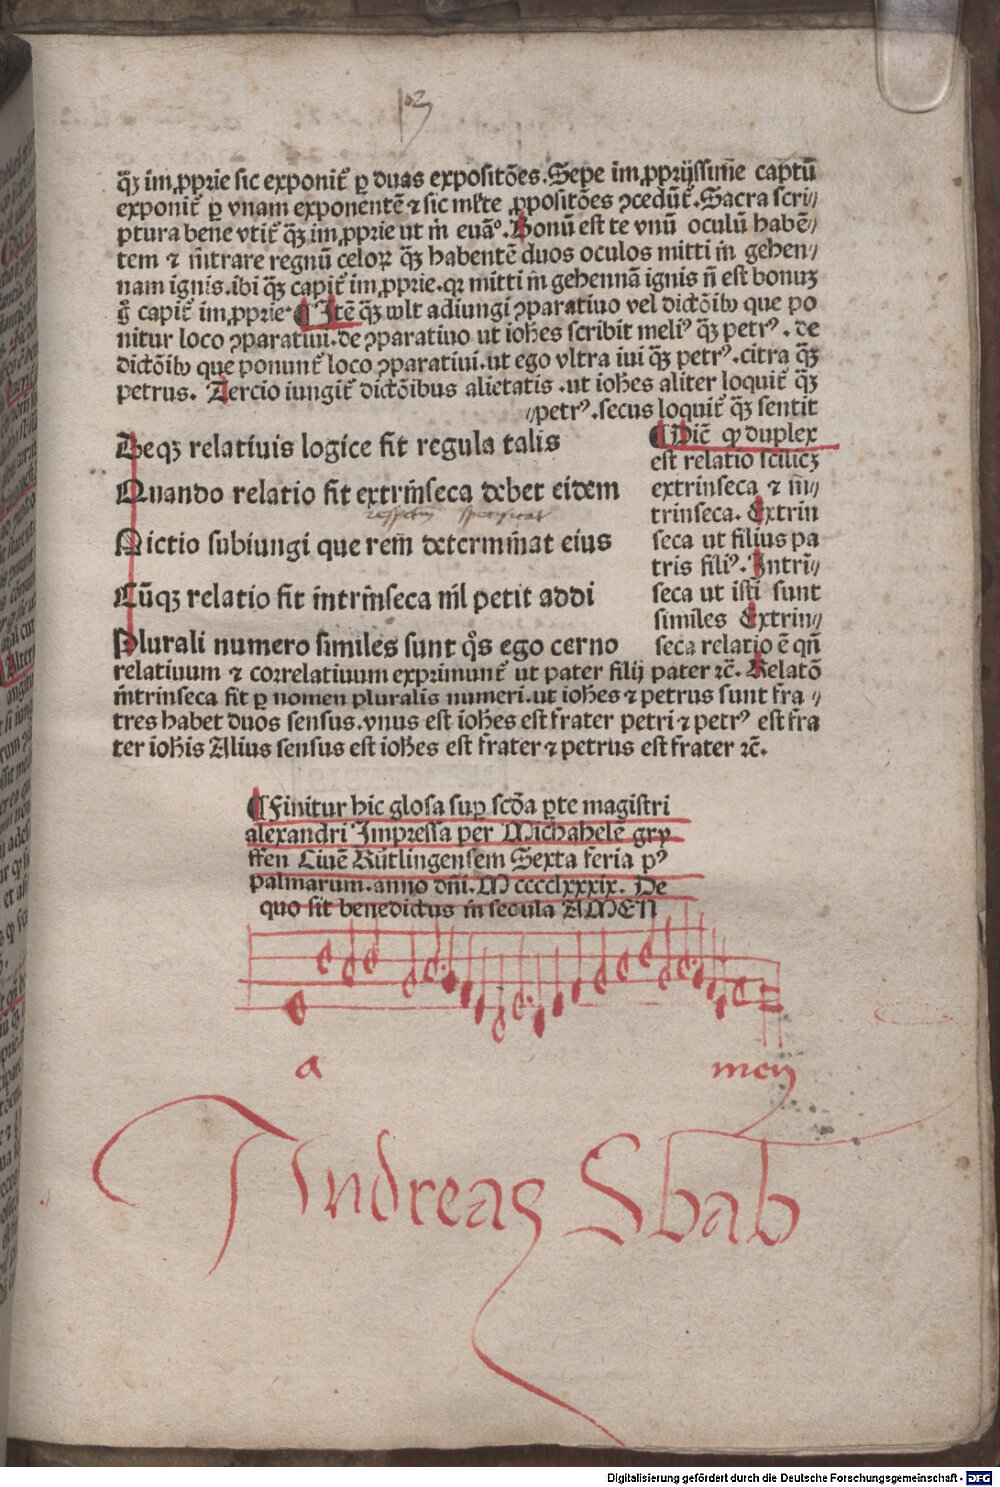 q̄ꝫ im ꝓprie sic exponit᷑ ꝑ duas expositōes. Sepe im ꝓprijssime captū
exponit᷑ ꝑ vnam exponentē ⁊ sic ml̓te ꝓpositōes ꝯcedūt᷑. Sacra scri⸗
ptura bene vtit᷑ q̄ꝫ im ꝓprie ut in euāᵒ. Bonū est te vnū oculū habē⸗
tem ⁊ intrare regnū celoꝝ q̄ꝫ habentē duos oculos mitti in gehen⸗
nam ignis. ibi q̄ꝫ capit᷑ im ꝓprie. qꝛ mitti in gehennā ignis n̄ est bonuꝫ
g̊ capit᷑ im ꝓprie. ¶ Itē q̄ꝫ vult adiungi ꝯparatiuo vel dictōibꝰ que po
nitur loco ꝯparatiui. de ꝯparatiuo ut ioħes scribit meliꝰ q̄ꝫ petrꝰ. de
dictōibꝰ que ponunt᷑ loco ꝯparatiui. ut ego vltra iui q̄ꝫ petrꝰ. citra q̄ꝫ
petrus. Tercio iungit᷑ dictōibus alietatis. ut ioħes aliter loquit᷑ q̄ꝫ
⸗petrꝰ. secus loquit᷑ q̄ꝫ sentit
Deqꝫ relatiuis logice fit regula talis
Quando relatio fit extrinseca debet eidem
respectum specificat
Dictio subiungi que rem determinat eius
Cūqꝫ relatio fit intrinseca nil petit addi
Plurali numero similes sunt q̊s ego cerno
¶ Dic̄ ꝙ duplex
est relatio scilicꝫ
extrinseca ⁊ in⸗
trinseca. Extrin
seca ut filius pa
tris filiꝰ. Intrī⸗
seca ut isti sunt
similes Extrin⸗
seca relatio ē qn̄
relatiuum ⁊ correlatiuum exprimunt᷑ ut pater filij pater ⁊c̄. Relatō
intrinseca fit ꝑ nomen pluralis numeri. ut ioħes ⁊ petrus sunt fra⸗
tres habet duos sensus. vnus est ioħes est frater petri ⁊ petrꝰ est fra
ter ioħis Alius sensus est ioħes est frater ⁊ petrus est frater ⁊c̄.
¶ Finitur hic glosa suꝑ scōa ꝑte magistri
alexandri Impressa per Michahelē gry
ffen Ciuē Rutlingensem Sexta feria pꝰ
palmarum. anno dn̄i. M cccclxxxix. De
quo sit benedictus in secula AMEN
a men
Andreas Sbab
Digitalisierung gefördert durch die Deutsche Forschungsgemeinschaft - DFG